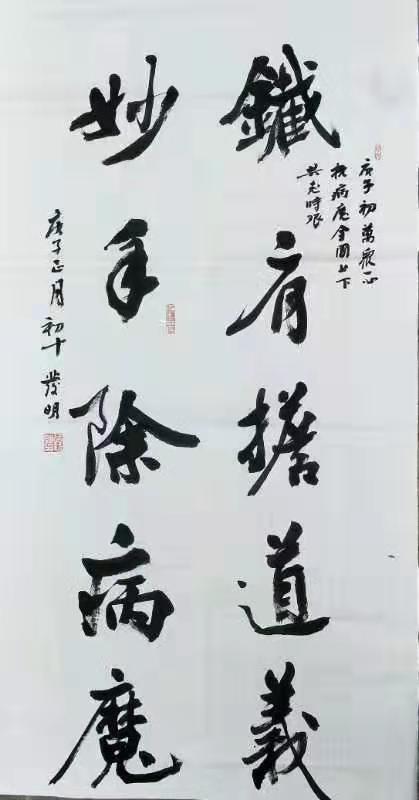 庚子初萬衆一心
抗病魔全國上下
共克時艰
鐵肩擔道義
妙手除病魔
庚子正月初十 發明